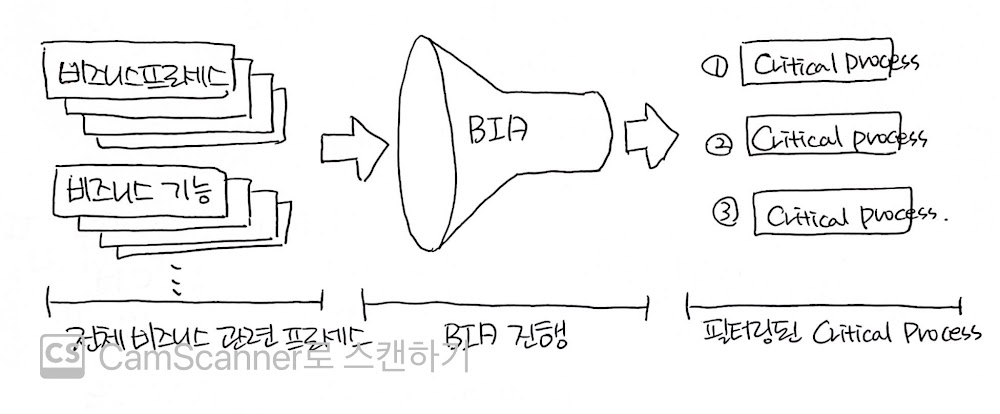 비즈니스프로세스
비즈니스 기능
BIA
① Critical process
② Critical process
③ Critical process.
전체 비즈니스 관련 프로세스
BIA 진행
필터링된 Critical Process
CS CamScanner로 스캔하기